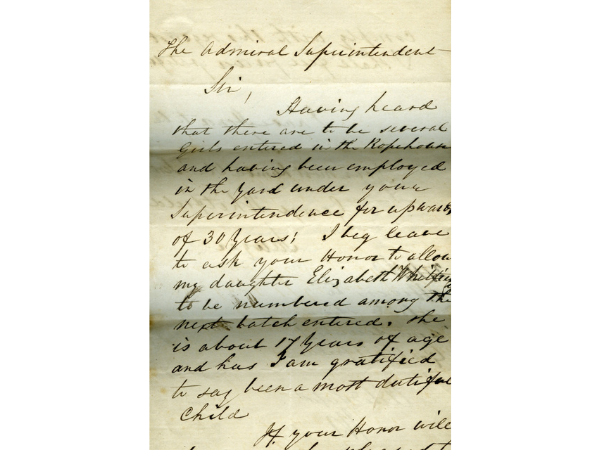 The Admiral Superintendent
Sir,
Having heard
that there are to be several
Girls entered in the Ropehouse
and having been employed
in the Yard under your
Superintendence for upwards
of 30 Years; I beg leave
to ask your Honor to allow
my daughter Elizabeth
to be numbered among the
next batch entered. She
is about 17 Years of age
and has I am gratified
to say been a most dutiful
Child
If your Honor will